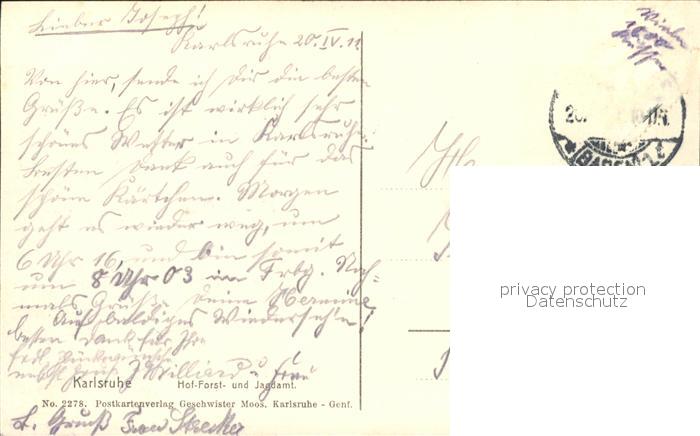 Lieber Joseph!
Karlsruhe 20.IV.11
Von hier, sende ich Dir die besten
Grüße. Es ist wirklich sehr
schönes Wetter in Karlsruhe.
Besten Dank auch für das
schöne Kärtchen. Morgen
geht es wieder weg, um
6 Uhr 16, und bin somit
um 8 Uhr 03 in Frbg. Noch-
mals Grüße Deine Hermine
Auf baldiges Wiederseh'n!
besten Dank für Ihre
u. Frau
Karlsruhe Hof-Forst- und Jagdamt.
No. 2278. Postkartenverlag Geschwister Moos, Karlsruhe - Genf.
Gruß Frau
Viele
1000
Küsse
20.
BADEN
H
privacy protection
Datenschutz